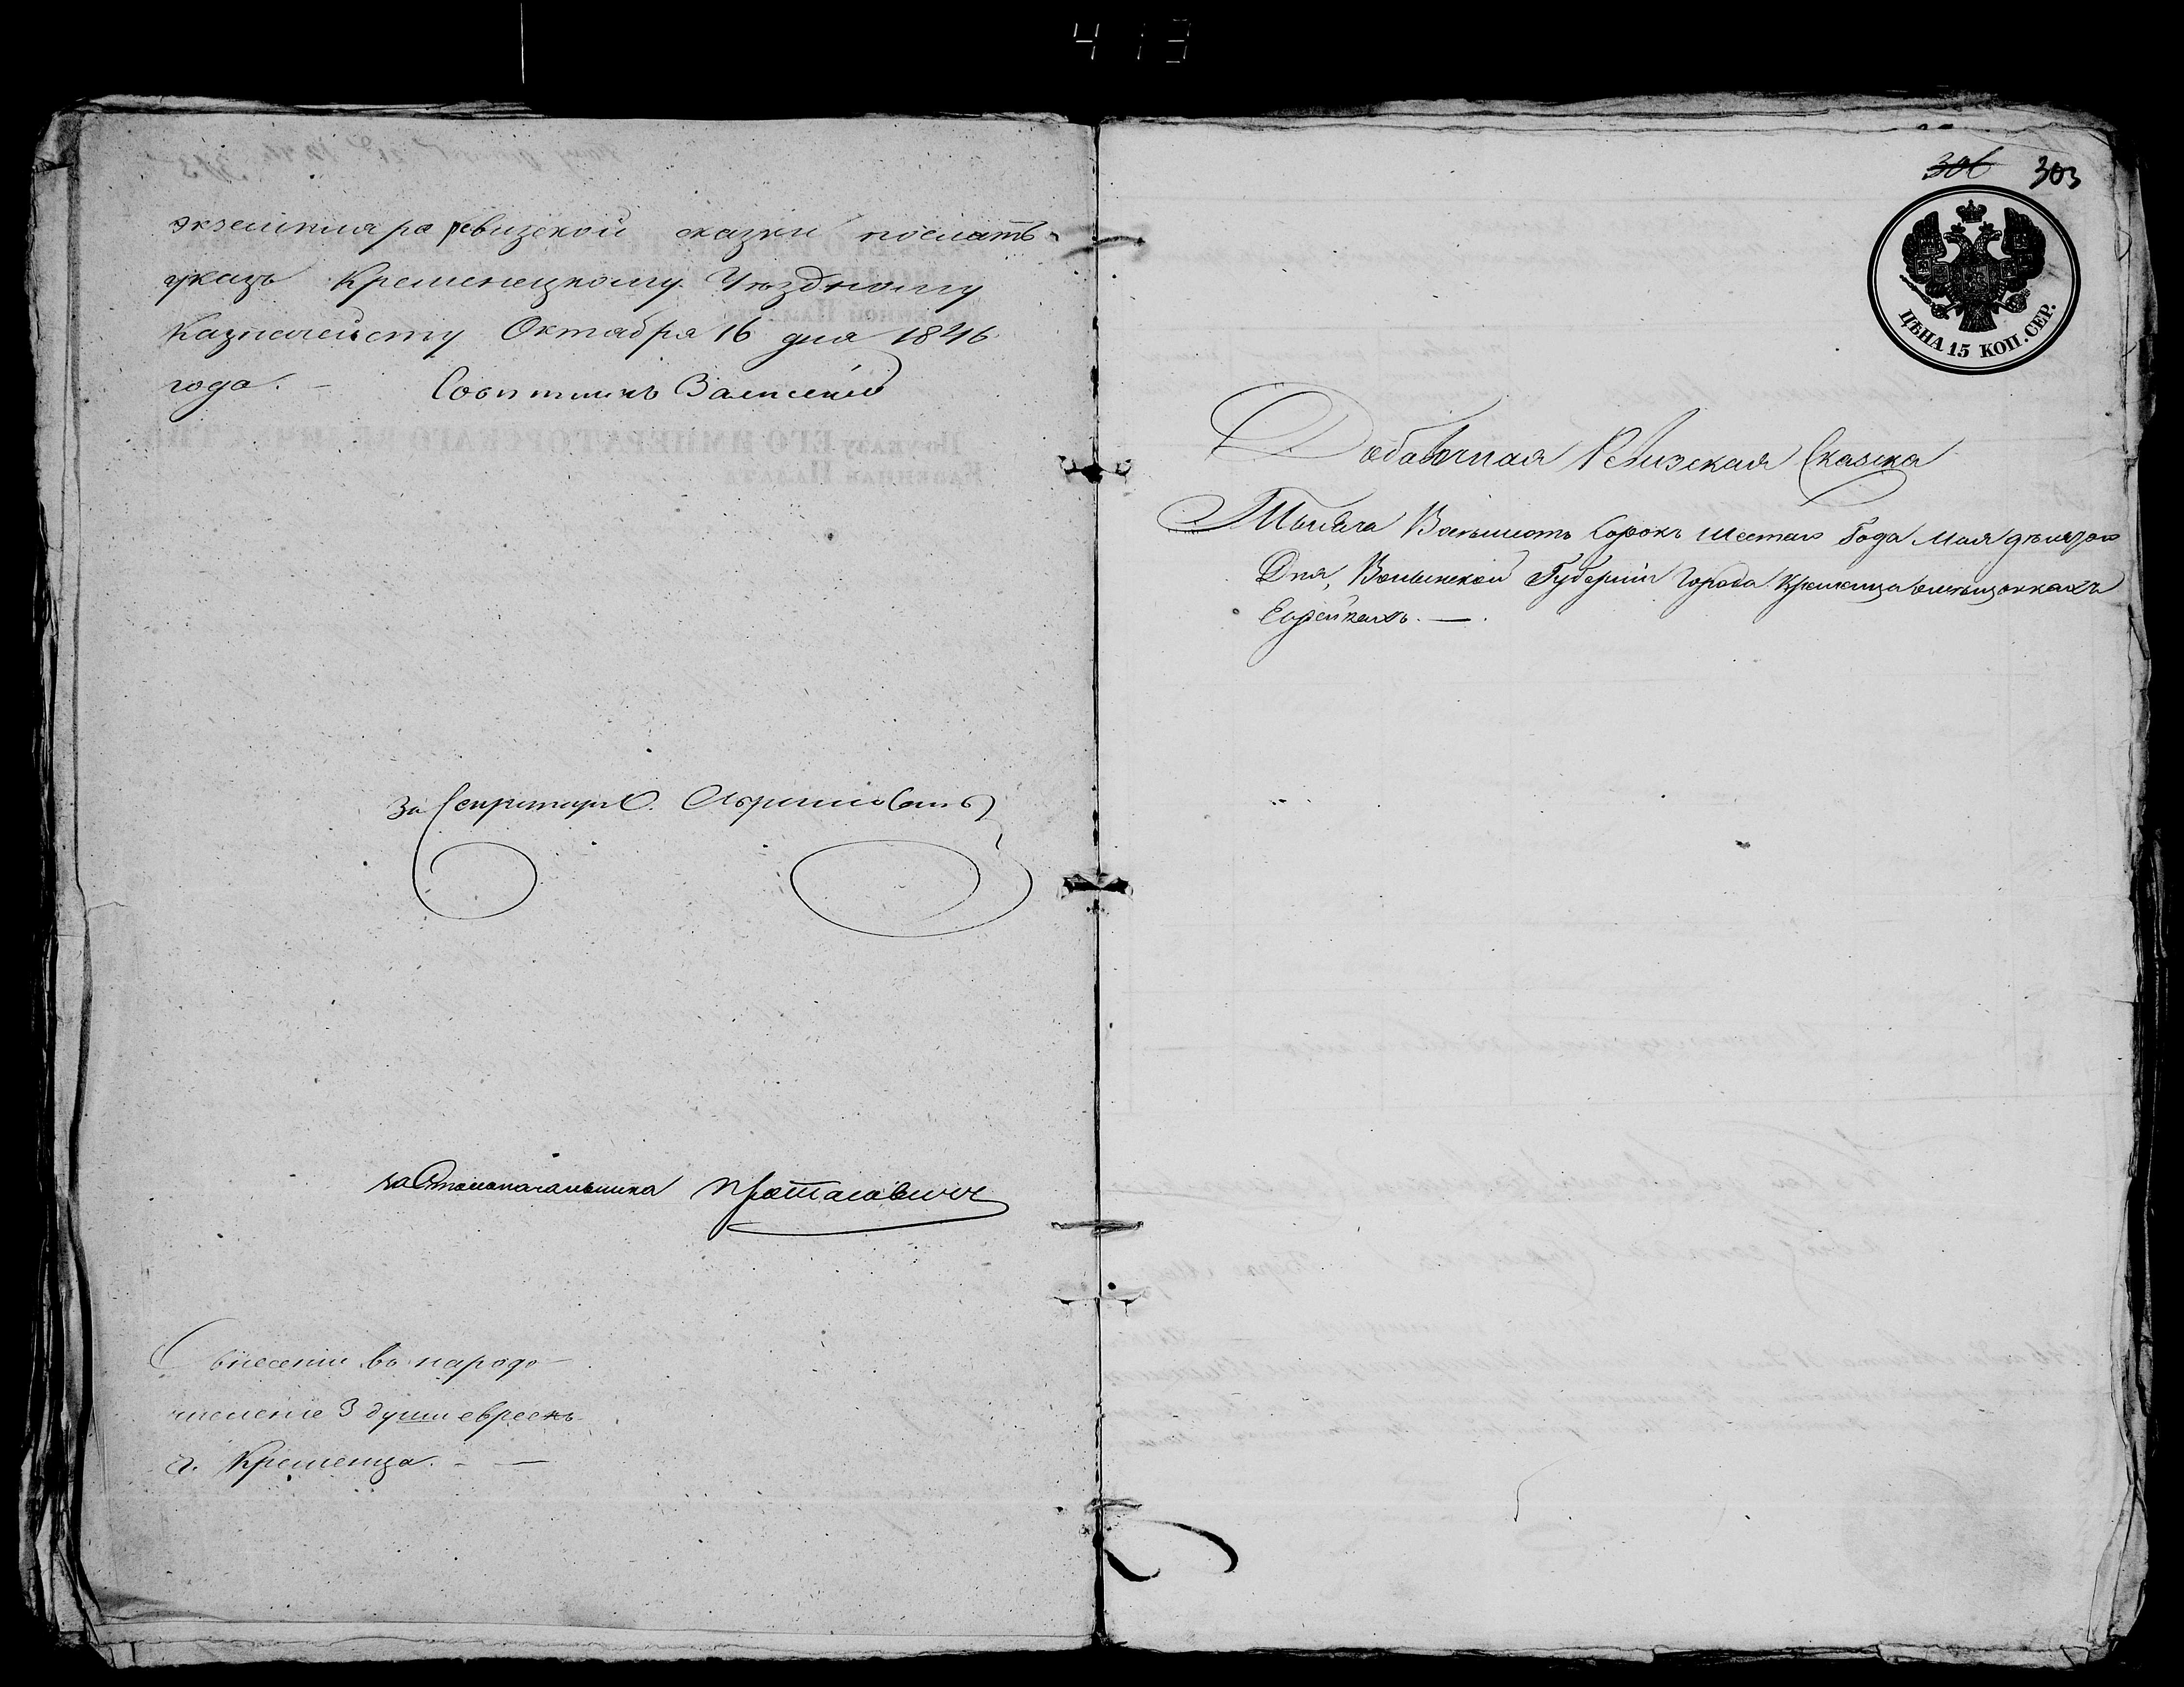 413
экземпляра ревизской сказки послать
указъ Кременецкому Уѣздному
Казначейству Октября 16 дня 1846
года. —
Совѣтникъ
За Секретаря
за Столоначальника Протасовичъ
О внесении въ народо-
численіе 3 души евреекъ
г. Кременца. — —
306 303
ЦѢНА 15 КОП. СЕР.
Добавочная Ревизская Сказка
Тысяча Восьмисотъ Сорокъ Шестаго Года Мая
Дня, Волынской Губерніи Города Кременца о мѣщанкахъ
Еврейкахъ. —